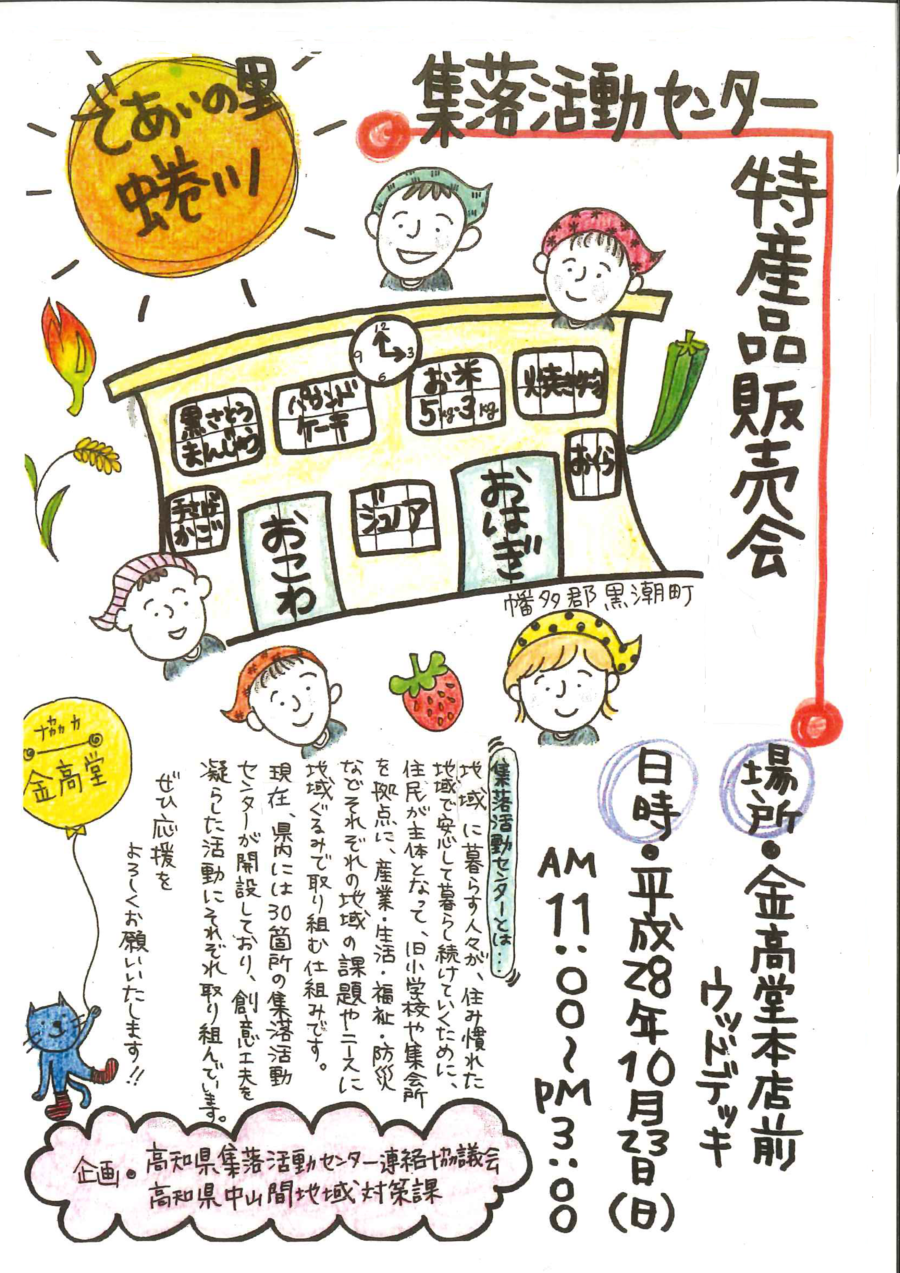 集落活動センター
特産品販売会
さあいの里
蜷川
12
3
6
9
黒さとう
まんじゅう
パウンド
ケーキ
お米
5kg・3kg
おくら
手さげ
かご
おこわ
ジュノア
おはぎ
幡多郡黒潮町
場所・金高堂本店前
ウッドデッキ
日時・平成28年10月23日(日)
AM
11:00〜PM3:00
集落活動センターとは…
地域に暮らす人々が、住み慣れた
地域で安心して暮らし続けていくために、
住民が主体となって、旧小学校や集会所
を拠点に、産業・生活・福祉・防災
などそれぞれの地域の課題やニーズに
地域ぐるみで取り組む仕組みです。
現在、県内には30箇所の集落活動
センターが開設しており、創意工夫を
凝らした活動にそれぞれ取り組んでいます。
ぜひ応援を
よろしくお願いいたします!!
協力
金高堂
企画・高知県集落活動センター連絡協議会
高知県中山間地域対策課